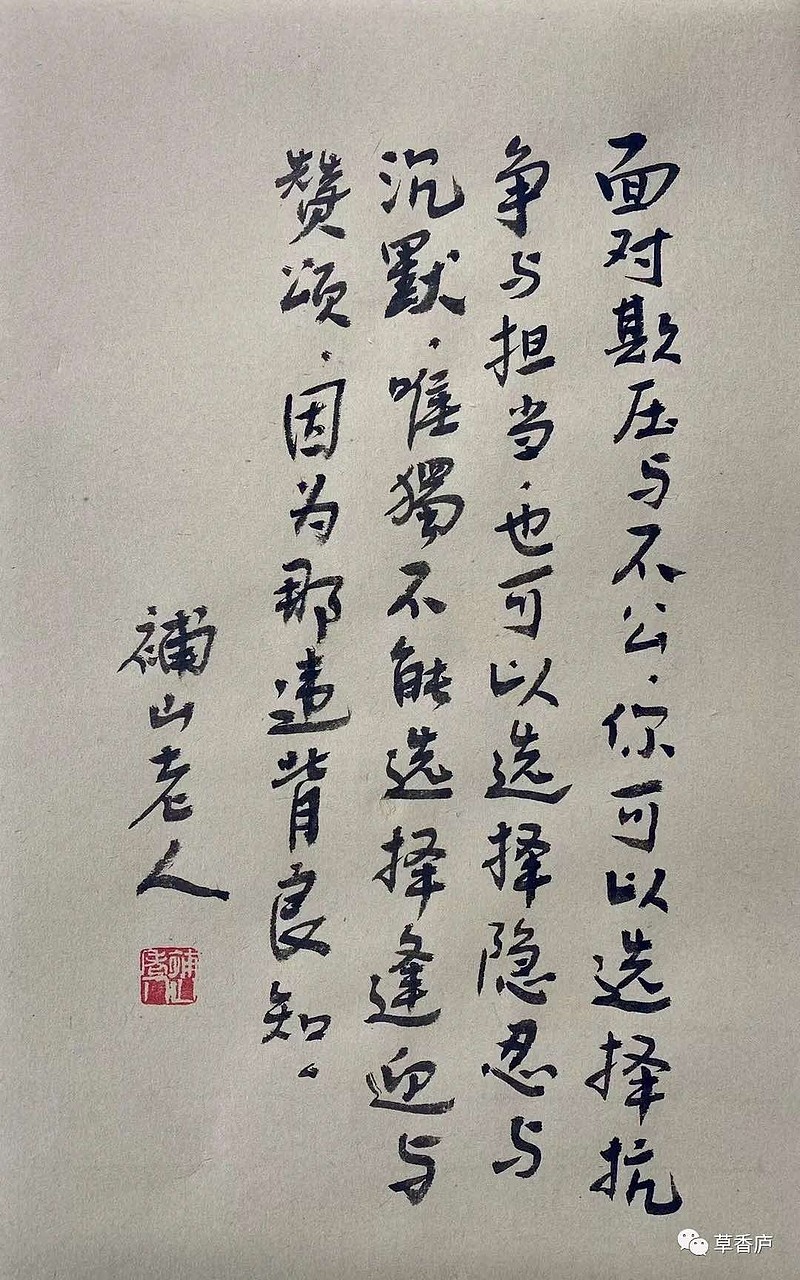 面对欺压与不公.你可以选择抗
争与担当.也可以选择隐忍与
沉默.唯獨不能选择逢迎与
赞颂.因为那违背良知。
補山老人
草香庐